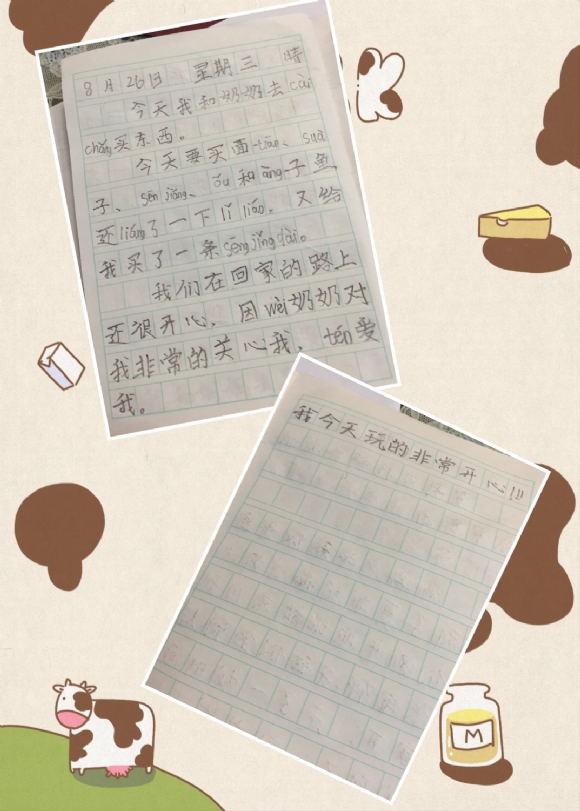 8月26日 星期三 晴
今天我和奶奶去cài
chǎng买东西。
今天要买面tiáo、suā
子、sēn jiāng、ǒu和àng子鱼
还liáng了一下lǐ liáo。又给
我买了一条sēng jīng dài。
我们在回家的路上
还很开心，因wèi奶奶对
我非常的关心我，tén爱
我。
我今天玩的非常开心!!
M